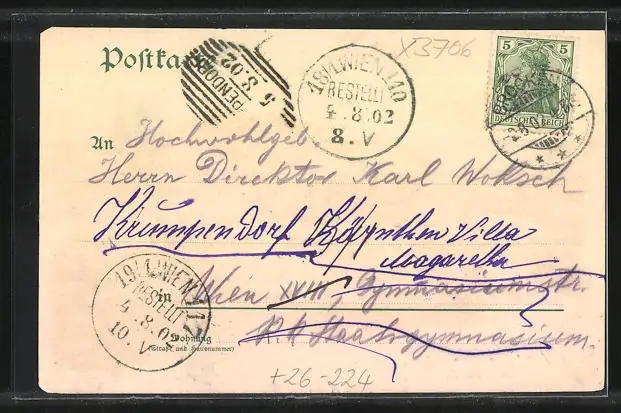 Postka
X3706
PENDORF
5 8.02
19/1 WIEN 110
BESTELLT
4.8.02
8.V
5 5
DEUTSCHES REICH
An Hochwohlgeb
Herrn Direktor Karl Woksch
Krumpendorf Kärnthen Villa
Magaretha
19/1 WIEN 117
BESTELLT
4.8.02
10.V
in Wien XVIII, Gymnasiumstr.
K.K Staatsgymnasium.
Wohnung
(Straße und Hausnummer)
+26-224